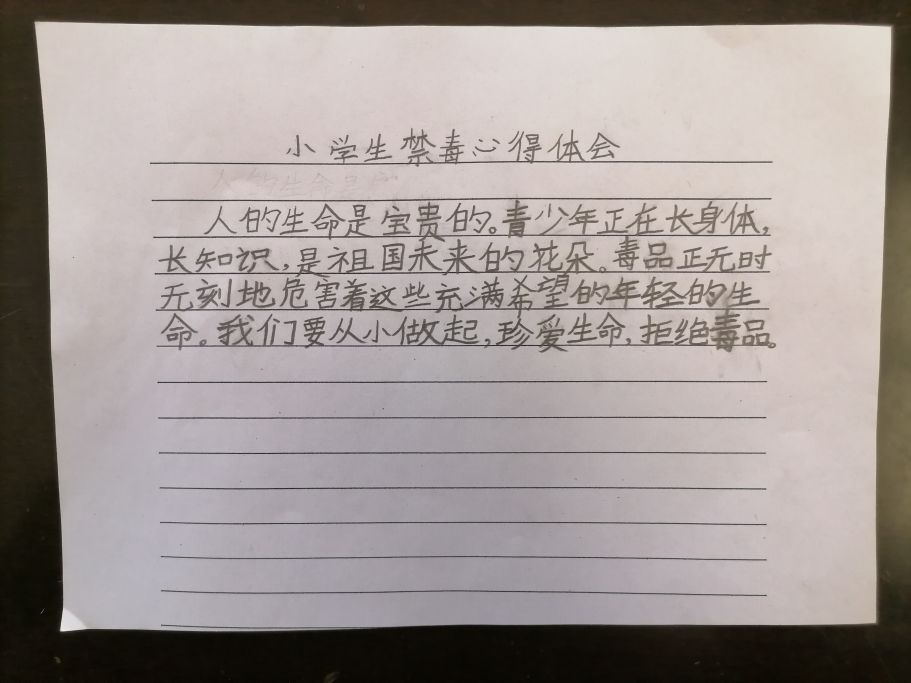 小学生禁毒心得体会
人的生命是宝贵的。青少年正在长身体,
长知识,是祖国未来的花朵。毒品正无时
无刻地危害着这些充满希望的年轻的生
命。我们要从小做起,珍爱生命,拒绝毒品。